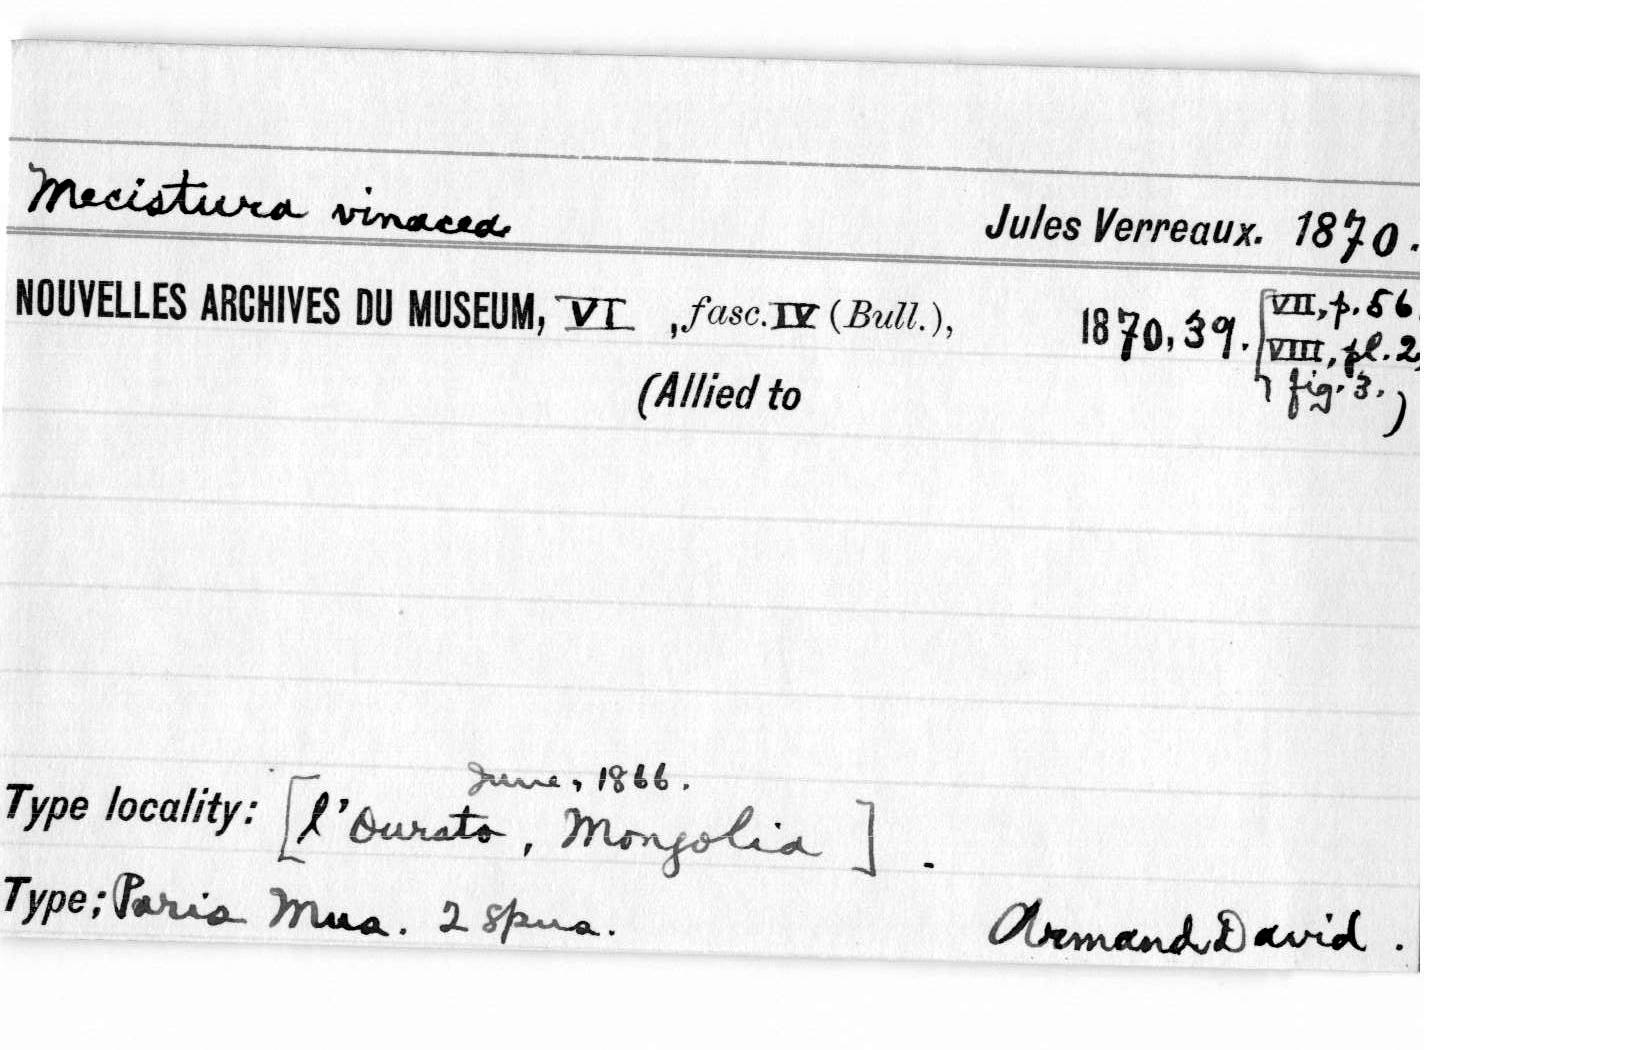 Mecistura vinacea Jules Verreaux. 1870.
NOUVELLES ARCHIVES DU MUSEUM, VI , fasc. IV (Bull.), 1870, 39. [VII, p. 56.
VIII, pl. 2,
(Allied to fig. 3. )
June, 1866.
Type locality: [l'Ourato, Mongolia] .
Type; Paris Mus. 2 spns. Armand David .